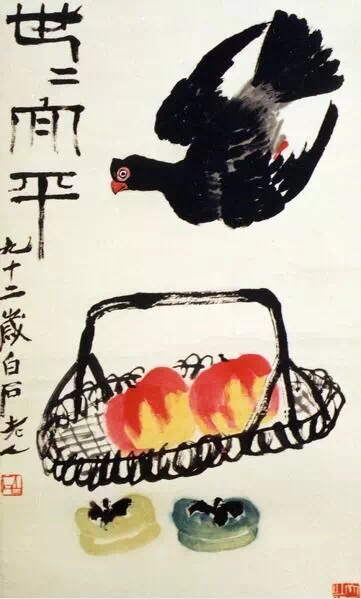 世〻平
九十二歲白石老人